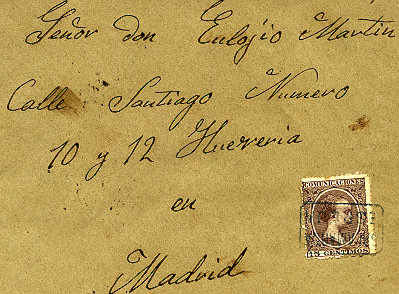 Señor don Eulojio Martin
Calle Santiago Numero
10 y 12 Huereria
en
Madrid
COMUNICACIONES
15 CENTIMOS